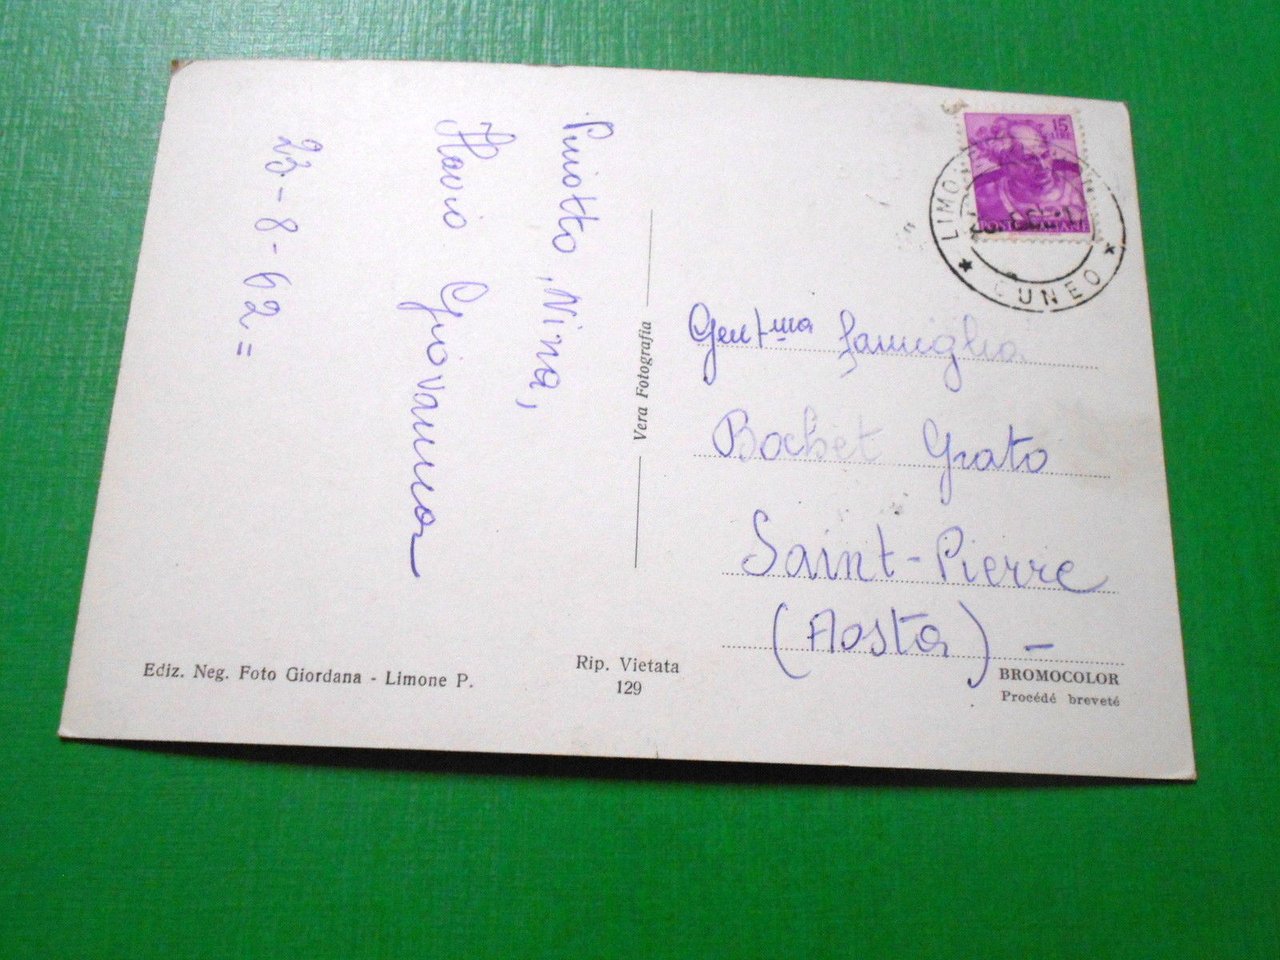 Piniotto, Nina,
Flavio Giovanna
23-8-62=
15
LIRE
LIMON
CUNEO
Gent.ma famiglia
Bochet Grato
Saint-Pierre
(Aosta) -
Vera Fotografia
Ediz. Neg. Foto Giordana - Limone P.
Rip. Vietata
129
BROMOCOLOR
Procédé breveté